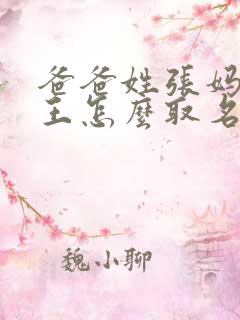 爸爸姓張媽
王怎麼取名
魏小聊